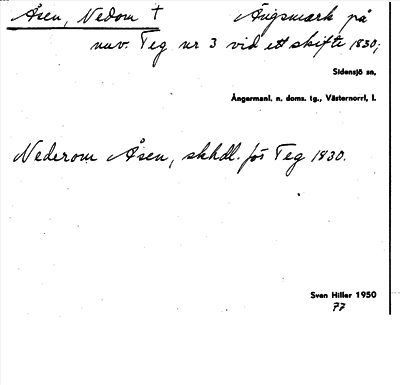 Åsen, Nedom † Ängsmark på
nuv. Teg nr 3 vid ett skifte 1830;
Sidensjö sn,
Ångermanl. n. doms. tg., Västernorrl. l.
Nederom Åsen, skhdl. för Teg 1830.
Sven Hiller 1950
77